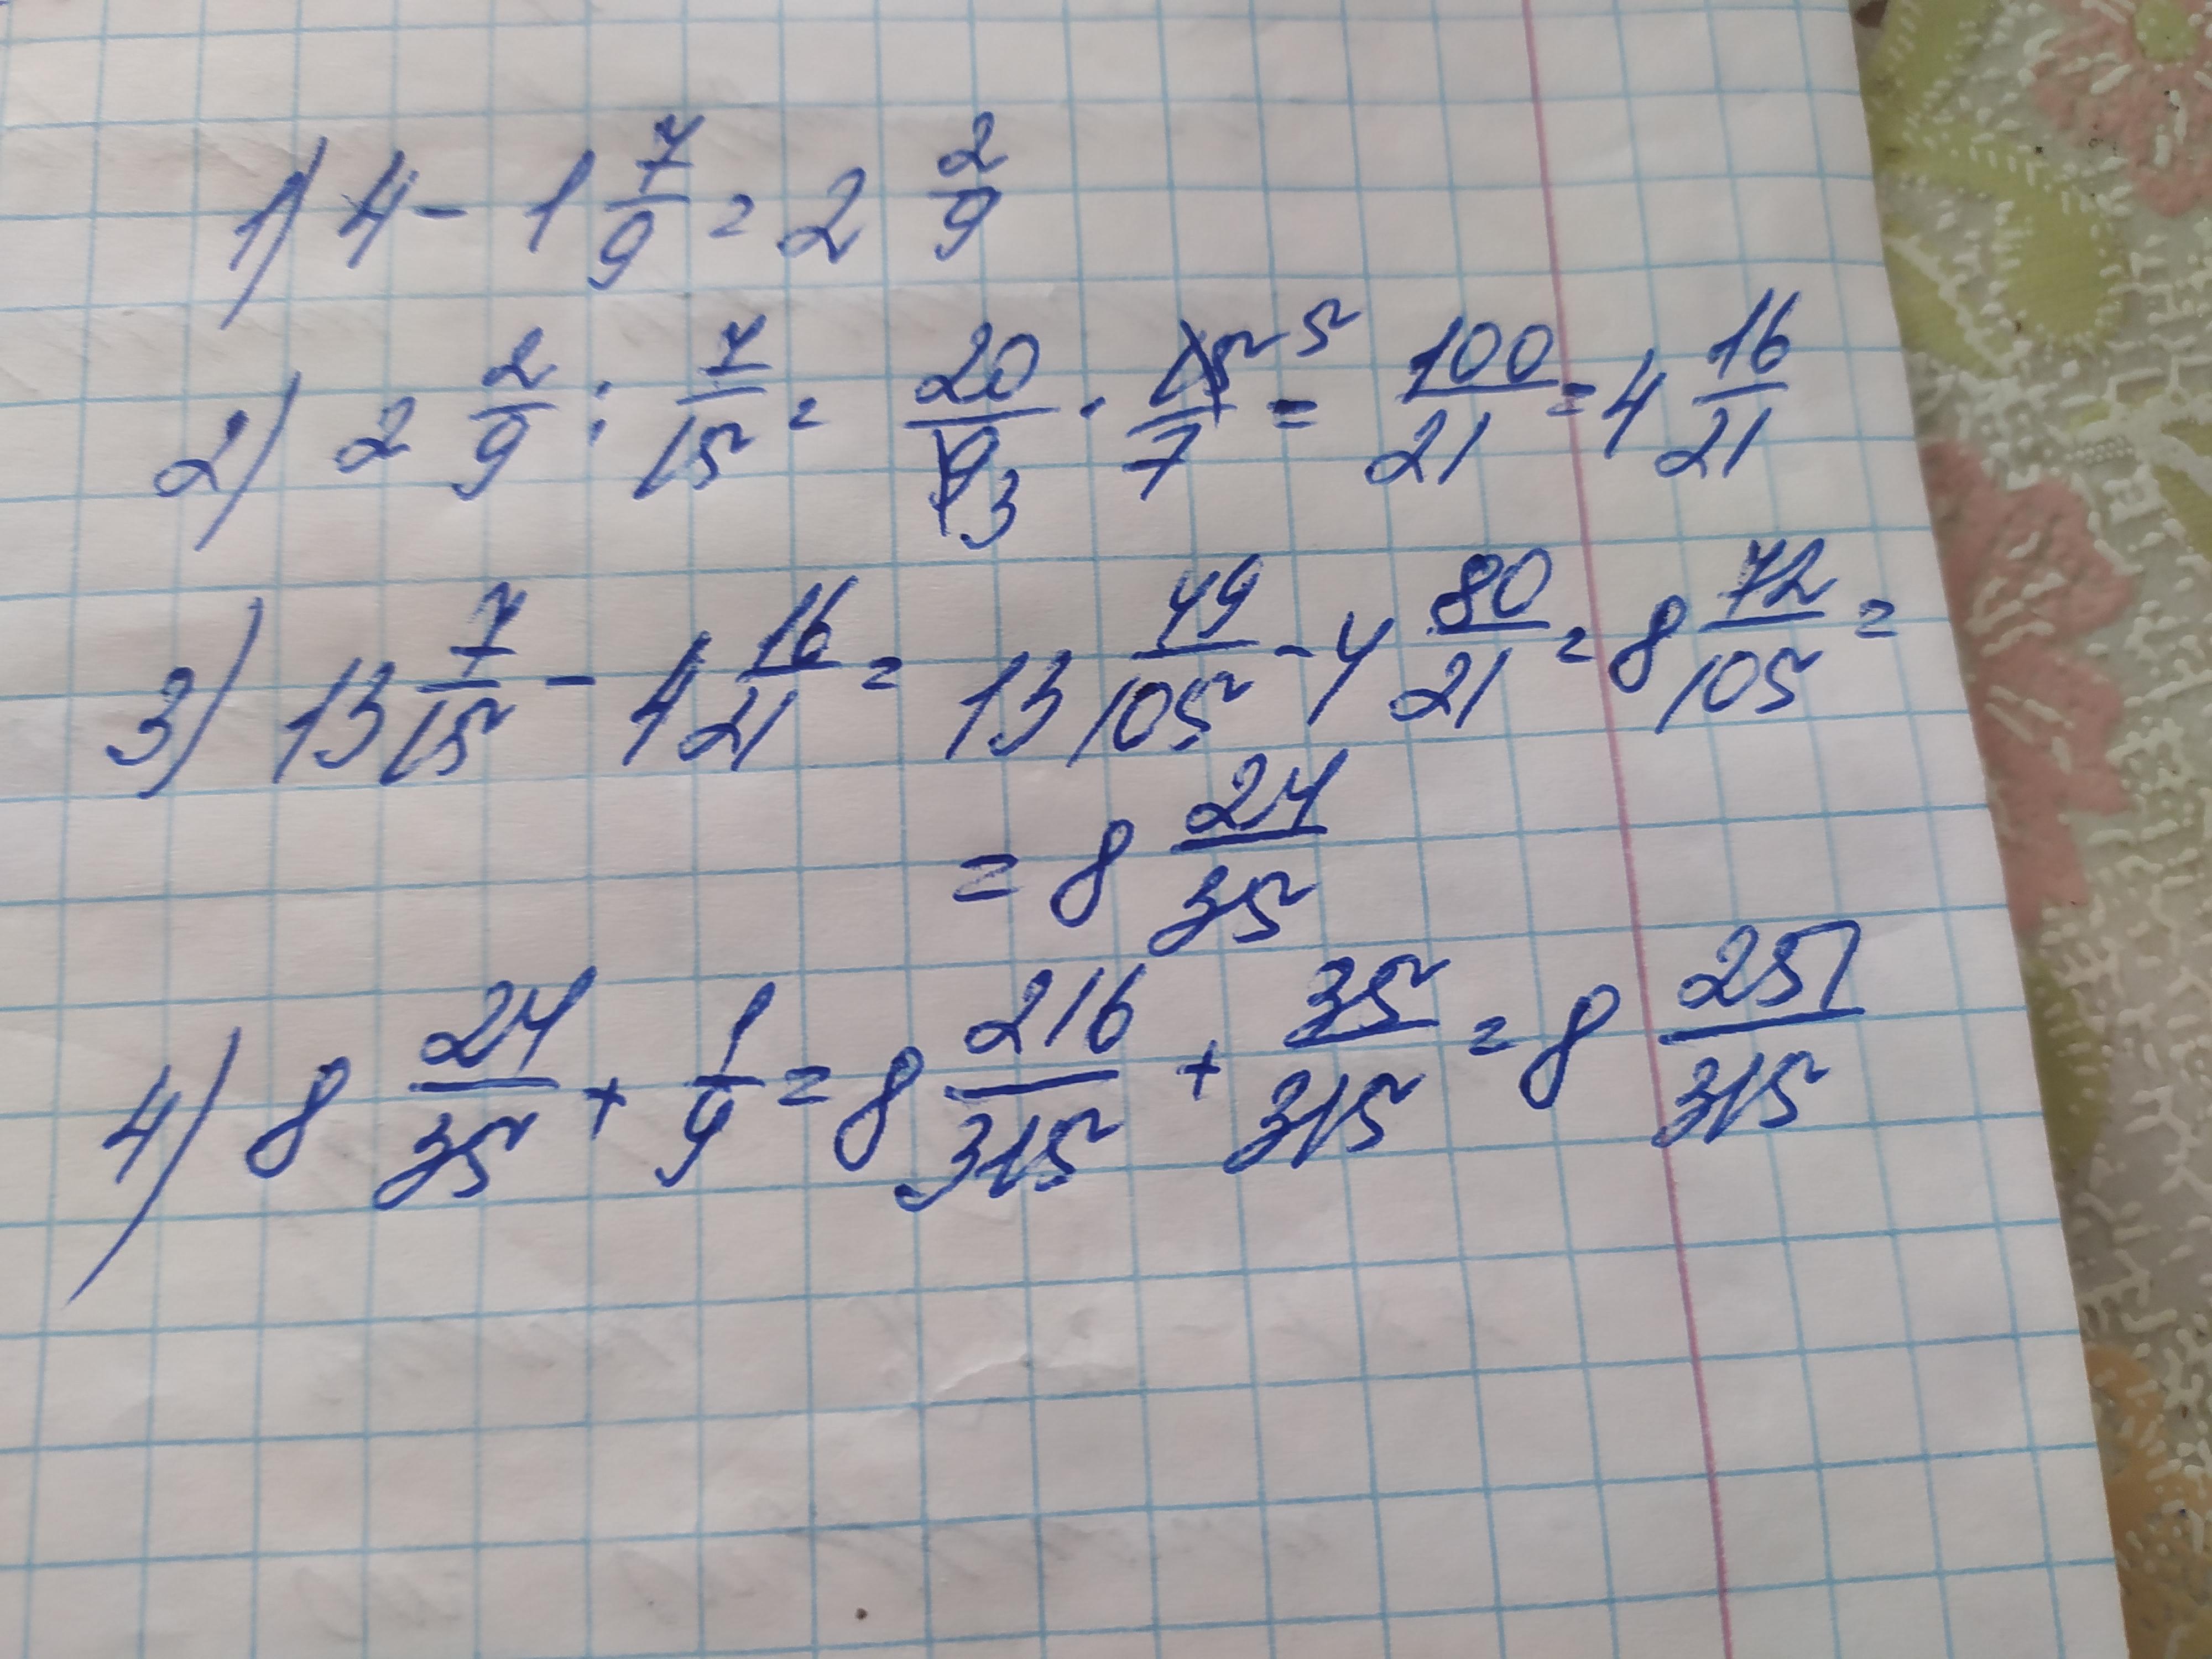 1) 4 - 1 7/9 = 2 2/9
2) 2 2/9 : 7/15 = 20/9 3 · 15/7 5 = 100/21 = 4 16/21
3) 13 7/15 - 4 16/21 = 13 49/105 - 4 80/21 = 8 72/105 =
= 8 24/35
4) 8 24/35 + 1/9 = 8 216/315 + 35/315 = 8 251/315